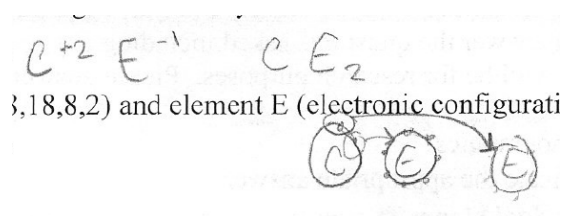 C+2 E1 CE2
3,18,8,2) and element E (electronic configurati
C E E